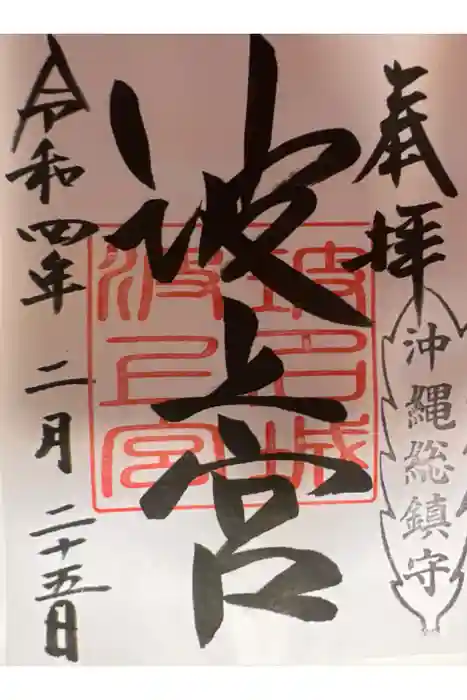 奉拝
沖縄総鎮守
波上宮
玻名城
波上宮
令和四年二月二十五日